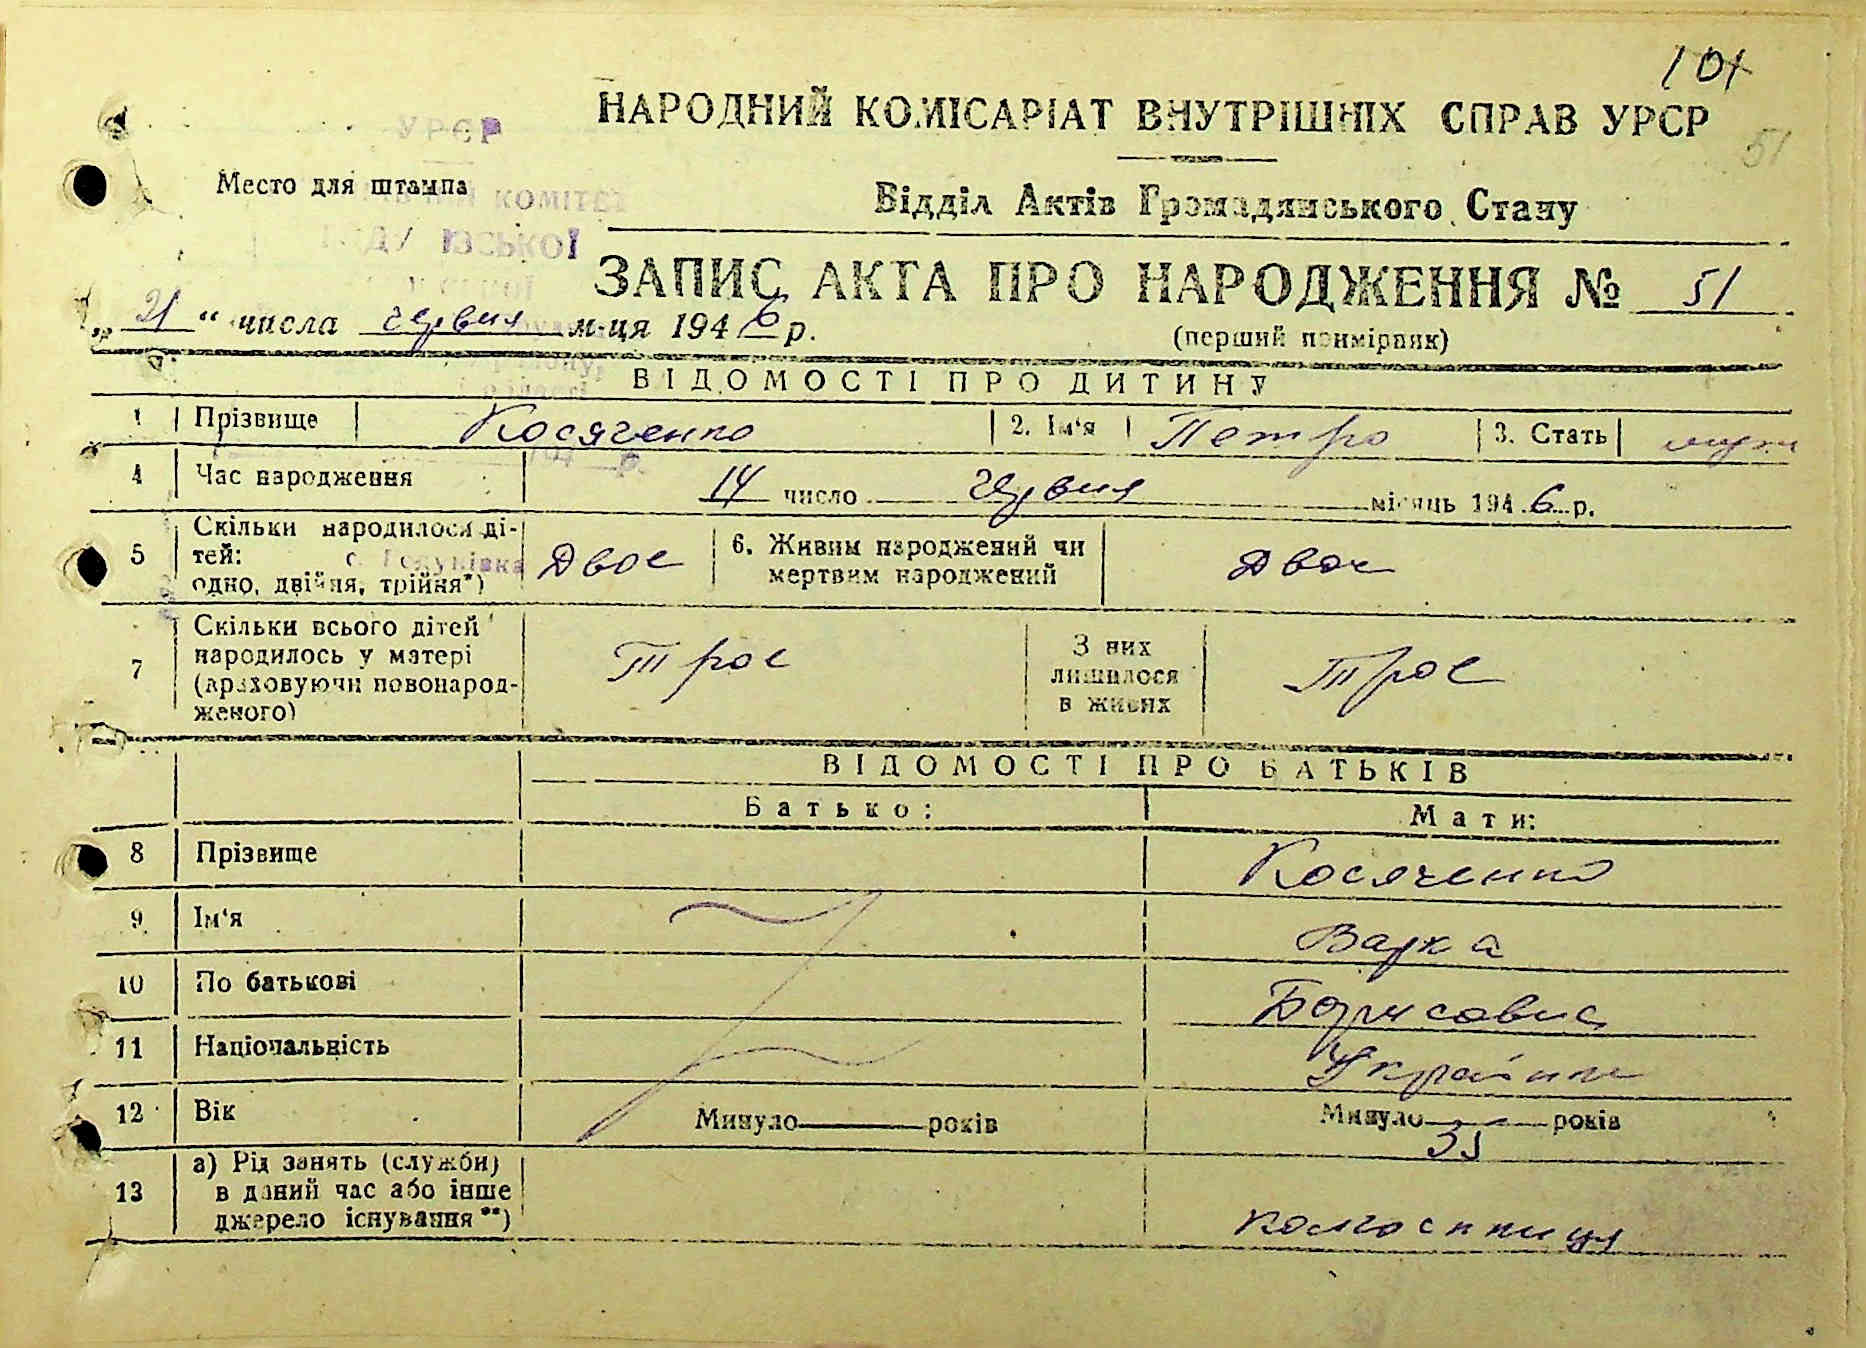 101
НАРОДНИЙ КОМІСАРІАТ ВНУТРІШНІХ СПРАВ УРСР
51
УРСР
Место для штампа
КОМІТЕТ
Відділ Актів Громадянського Стану
ЗАПИС АКТА ПРО НАРОДЖЕННЯ № 51
„21“ числа червня м-ця 1946 р.
(перший примірник)
ВІДОМОСТІ ПРО ДИТИНУ
1 Прізвище Косяченко 2. Ім'я Петро 3. Стать муж
4 Час народження 14 число червня місяць 1946 р.
5 Скільки народилося ді-
тей:
одно, двійня, трійня*) Двоє 6. Живим народжений чи
мертвим народжений Двоє
7 Скільки всього дітей
народилось у матері
(враховуючи новонарод-
женого) Троє З них
лишилося
в живих Троє
ВІДОМОСТІ ПРО БАТЬКІВ
Батько: Мати:
8 Прізвище Косяченко
9 Ім'я Варка
10 По батькові Борисовна
11 Національність Українк
12 Вік Минуло років Минуло 35 років
13 а) Рід занять (служби)
в даний час або інше
джерело існування**) колгоспниця